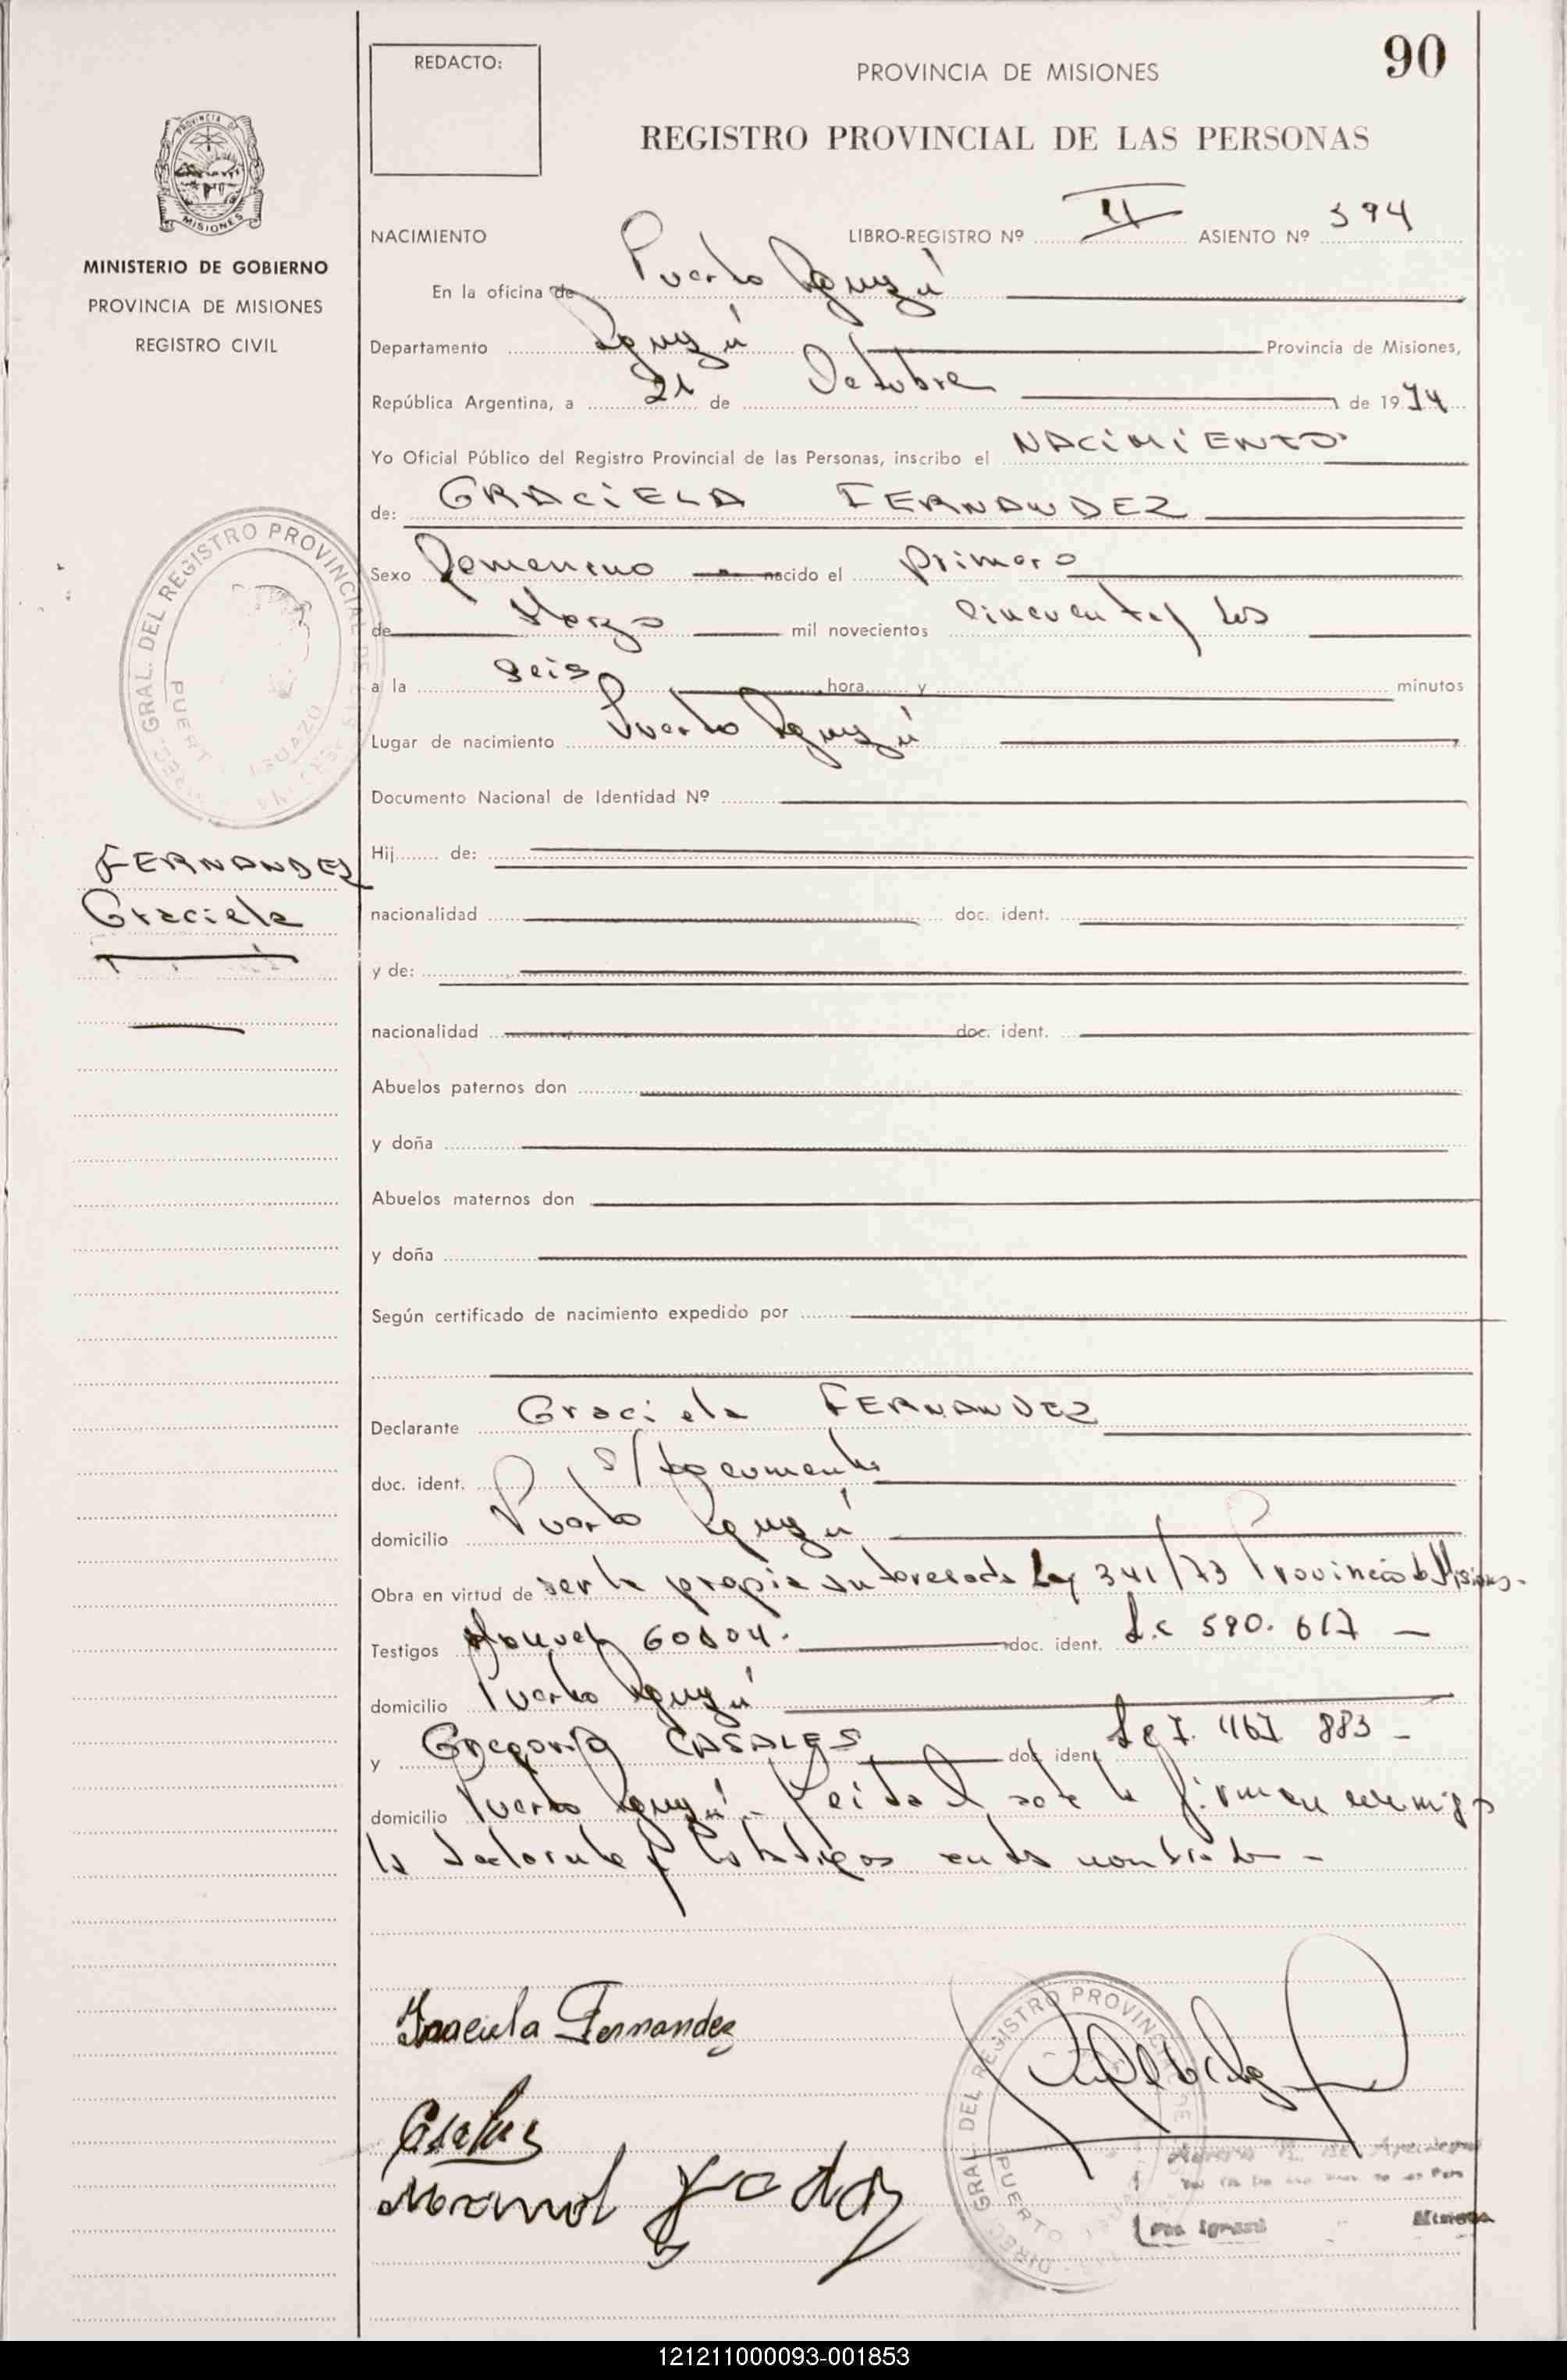 REDACTO:
PROVINCIA DE MISIONES
90
REGISTRO PROVINCIAL DE LAS PERSONAS
PROVINCIA DE MISIONES
MINISTERIO DE GOBIERNO
PROVINCIA DE MISIONES
REGISTRO CIVIL
NACIMIENTO LIBRO-REGISTRO Nº II ASIENTO Nº 394
En la oficina de Puerto Iguazú
Departamento Iguazú Provincia de Misiones,
República Argentina, a 21 de Octubre de 1974
Yo Oficial Público del Registro Provincial de las Personas, inscribo el NACIMIENTO
de: GRACIELA FERNANDEZ
Sexo Femenino nacido el primero
de Marzo mil novecientos cincuenta y dos
a la seis hora y minutos
Lugar de nacimiento Puerto Iguazú
Documento Nacional de Identidad Nº
GRAL. DEL REGISTRO PROVINCIAL DE
PUERT IGUAZU
FERNANDEZ
Graciela
Hij de:
nacionalidad doc. ident.
y de:
nacionalidad doc. ident.
Abuelos paternos don
y doña
Abuelos maternos don
y doña
Según certificado de nacimiento expedido por
Declarante Graciela FERNANDEZ
doc. ident. s/documento
domicilio Puerto Iguazú
Obra en virtud de ser la propia interesada Ley 341/73 Provincia de Misiones.
Testigos Manuel doc. ident. L.c 590.617
domicilio Puerto Iguazú
y Gregorio CASALES doc. ident. 883
domicilio Puerto Iguazú. Leida el acta la firman conmigo
la declarante y los testigos nombrados
Graciela Fernandez
Casales
Manuel
DIREC. GRAL. DEL REGISTRO PROVINCIAL DE
PUERTO
Misiones
121211000093-001853